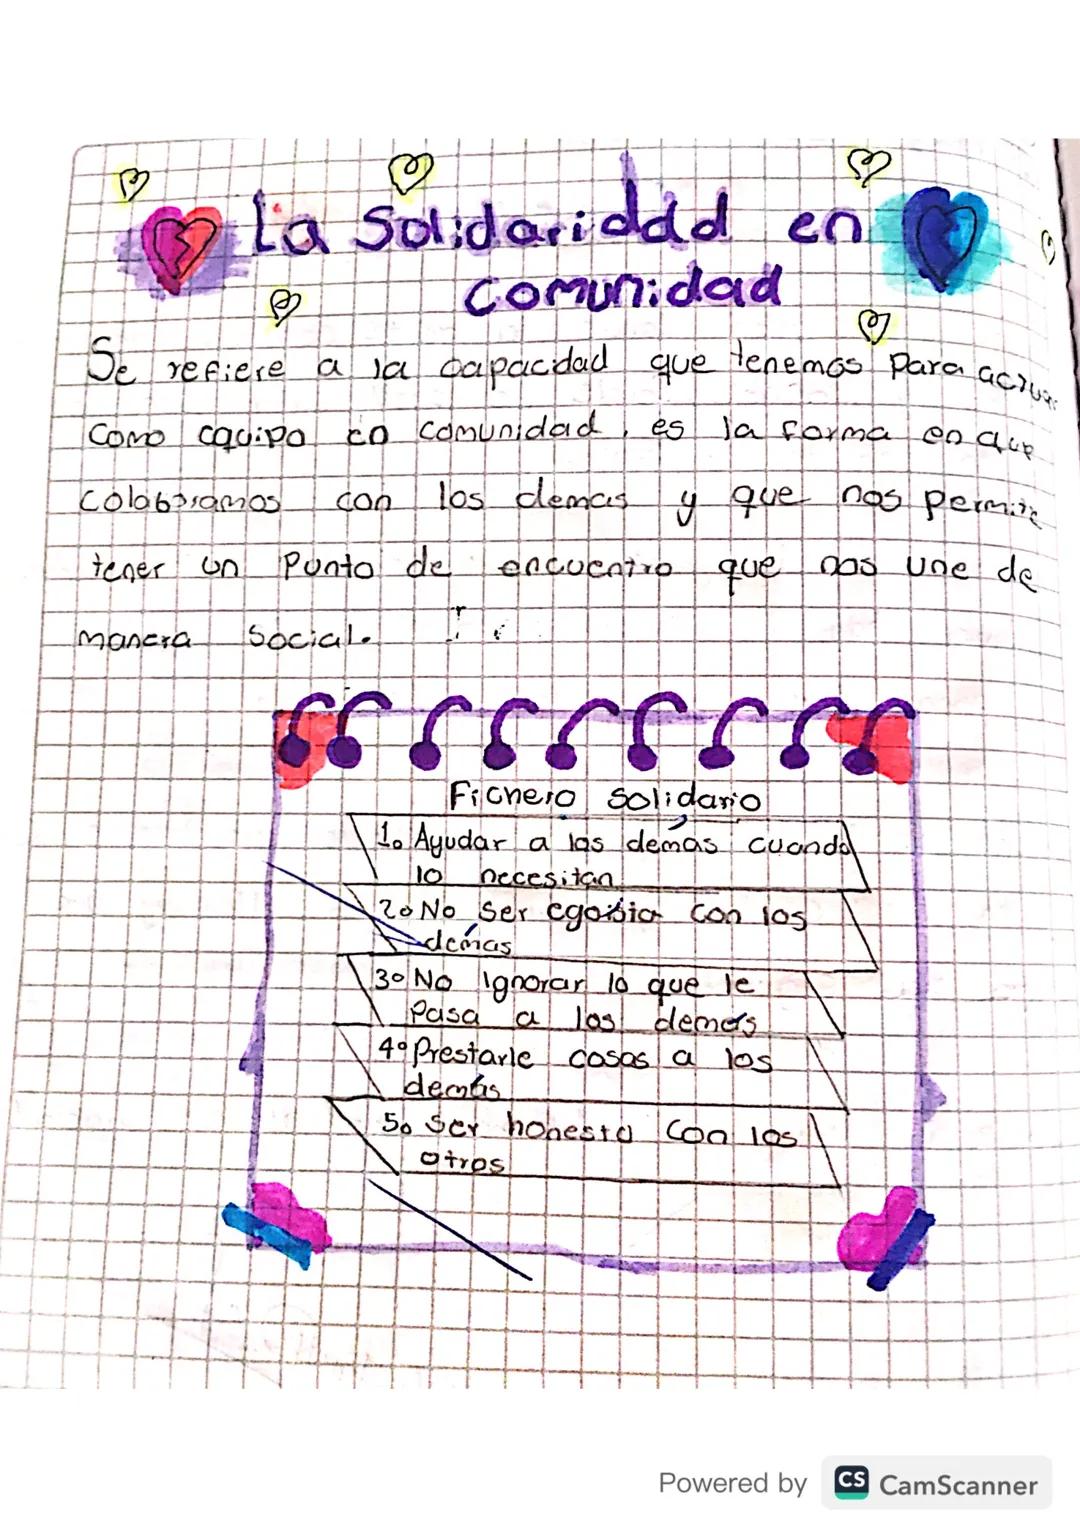 La Solidaridad en
comunidad
Se refiere a la capacidad que tenemos para actuar
como equipo en comunidad, es la forma en que
colaboramos con los demas y que nos permite
tener un punto de encuentro que nos une de
manera social.
Fichero solidario
1. Ayudar a los demás cuando
lo necesitan
2. No Ser egoista con los
demás
3. No Ignorar lo que le
Pasa a los demas
4. Prestarle cosas a los
demás
5. Ser honesto con los
otros
Powered by CS CamScanner